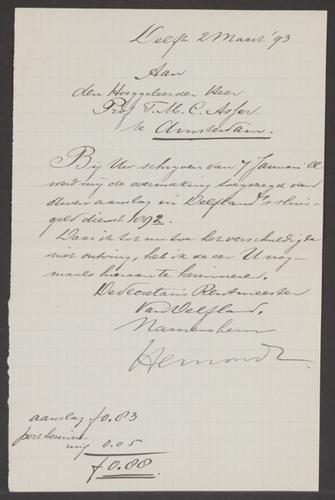 Delft 2 Maart '93
Aan
den Hooggeleerden Heer
Prof. T. M. C. Asser
te Amsterdam.
Bij Uw schrijven van 7 Januari ll
werd mij de overmaking toegezegd van
Uwen aanslag in Delfland's sluis-
geld dienst 1892.
Daar ik tot nu toe het verschuldigde
niet ontving, heb ik de eer U nog-
maals hieraan te herinneren.
De Secretaris Rentmeester
van Delfland.
Namens hem
aanslag f 0.83
port herinne-
ring 0.05
f 0.88